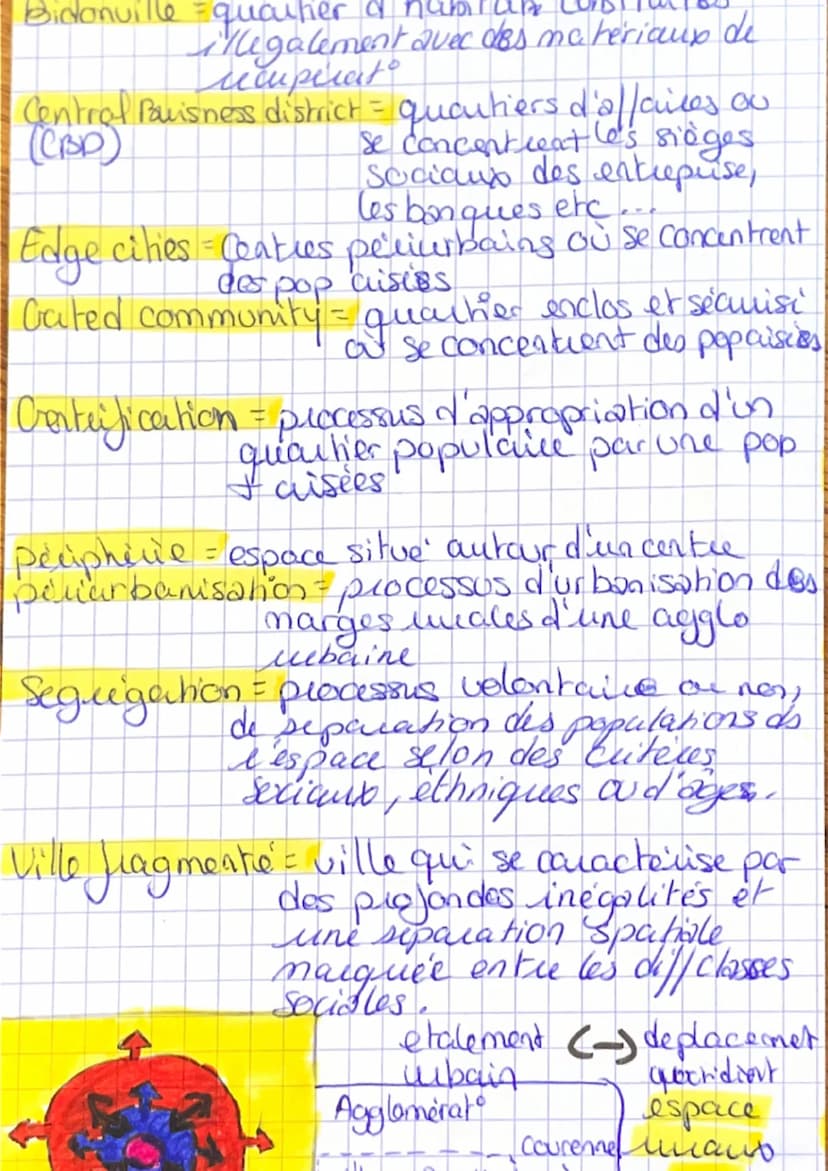 Bidonville = quartier d'habitats construites
illégalement avec des matériaux de
récupérat°
Central Buisness district = quartiers d'affaires où
(CBD) se concentrent les sièges
sociaux des entreprise,
les banques etc...
Edge cities = Centres périurbains où se concentrent
des pop aisées
Gated community = quartier enclos et sécurisé
où se concentrent des pop aisées
Gentrification = processus d'appropriation d'un
quartier populaire par une pop
+ aisées
périphérie = espace situé autour d'un centre
périurbanisation = processus d'urbanisation des
marges rurales d'une agglo
urbaine
Ségrégation = processus volontaire ou non,
de séparation des populations ds
l'espace selon des critères
sociaux, éthniques ou d'âges.
Ville fragmenté = ville qui se caractérise par
des profondes inégalités et
une séparation spatiale
marquée entre les diff classes
sociales.
etalement <-> deplacement
urbain quotidient
Agglomérat° espace
couronne ruraux